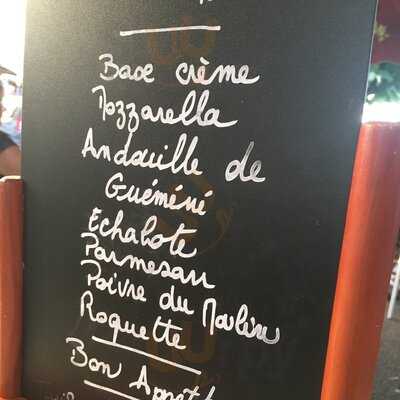 Base crème
Mozzarella
Andouille de
Guéméné
Echalote
Parmesan
Poivre du Moulin
Roquette
Bon Appétit